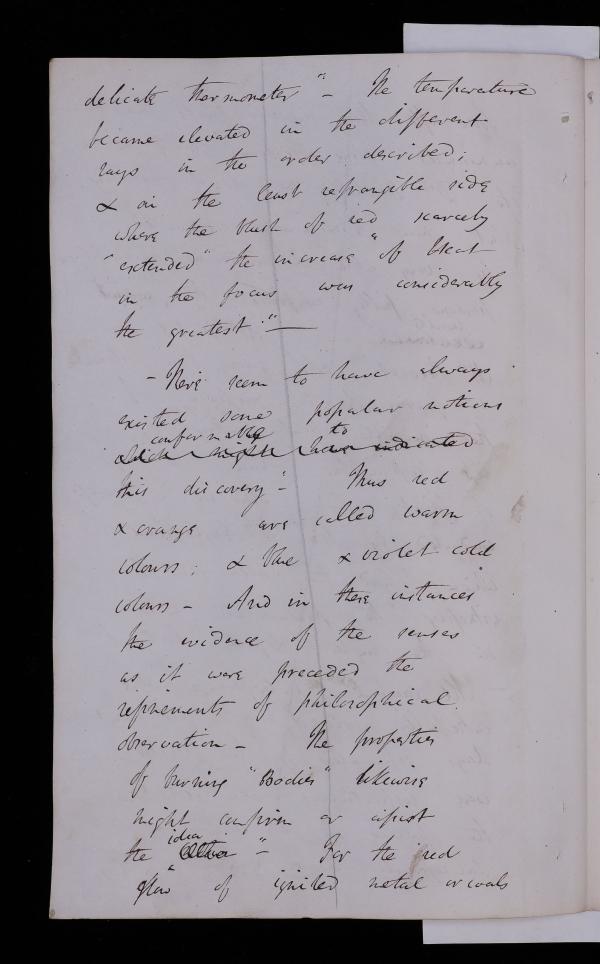 delicate thermometer" - The temperature
became elevated in the different
rays in the order described;
& on the least refrangible side
where the blush of red scarcely
"extended" the increase "of heat
in the focus was considerably
the greatest:" —
- There seem to have always
existed some popular notions
conformable to
which might have indicated
this discovery" - Thus red
& orange are called warm
colours; & blue & violet cold
colours - And in these instances
the evidence of the senses
as it were preceded the
refinements of philosophical
observation - The properties
of burning "Bodies" likewise
might confirm or assist
idea
the " - For the red
glow" of ignited metal or coals